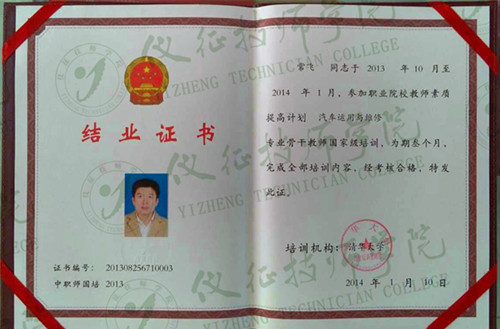 结业证书
证书编号：201308256710003
中职师国培 2013
常飞 同志于 2013 年 10 月至
2014 年 1 月，参加职业院校教师素质
提高计划 汽车运用与维修
专业骨干教师国家级培训，为期叁个月，
完成全部培训内容，经考核合格，特发
此证。
培训机构：清华大学
2014 年 1 月 10 日
仪征技师学院
YIZHENG TECHNICIAN COLLEGE
仪征技师学院
YIZHENG TECHNICIAN COLLEGE
仪征技师学院